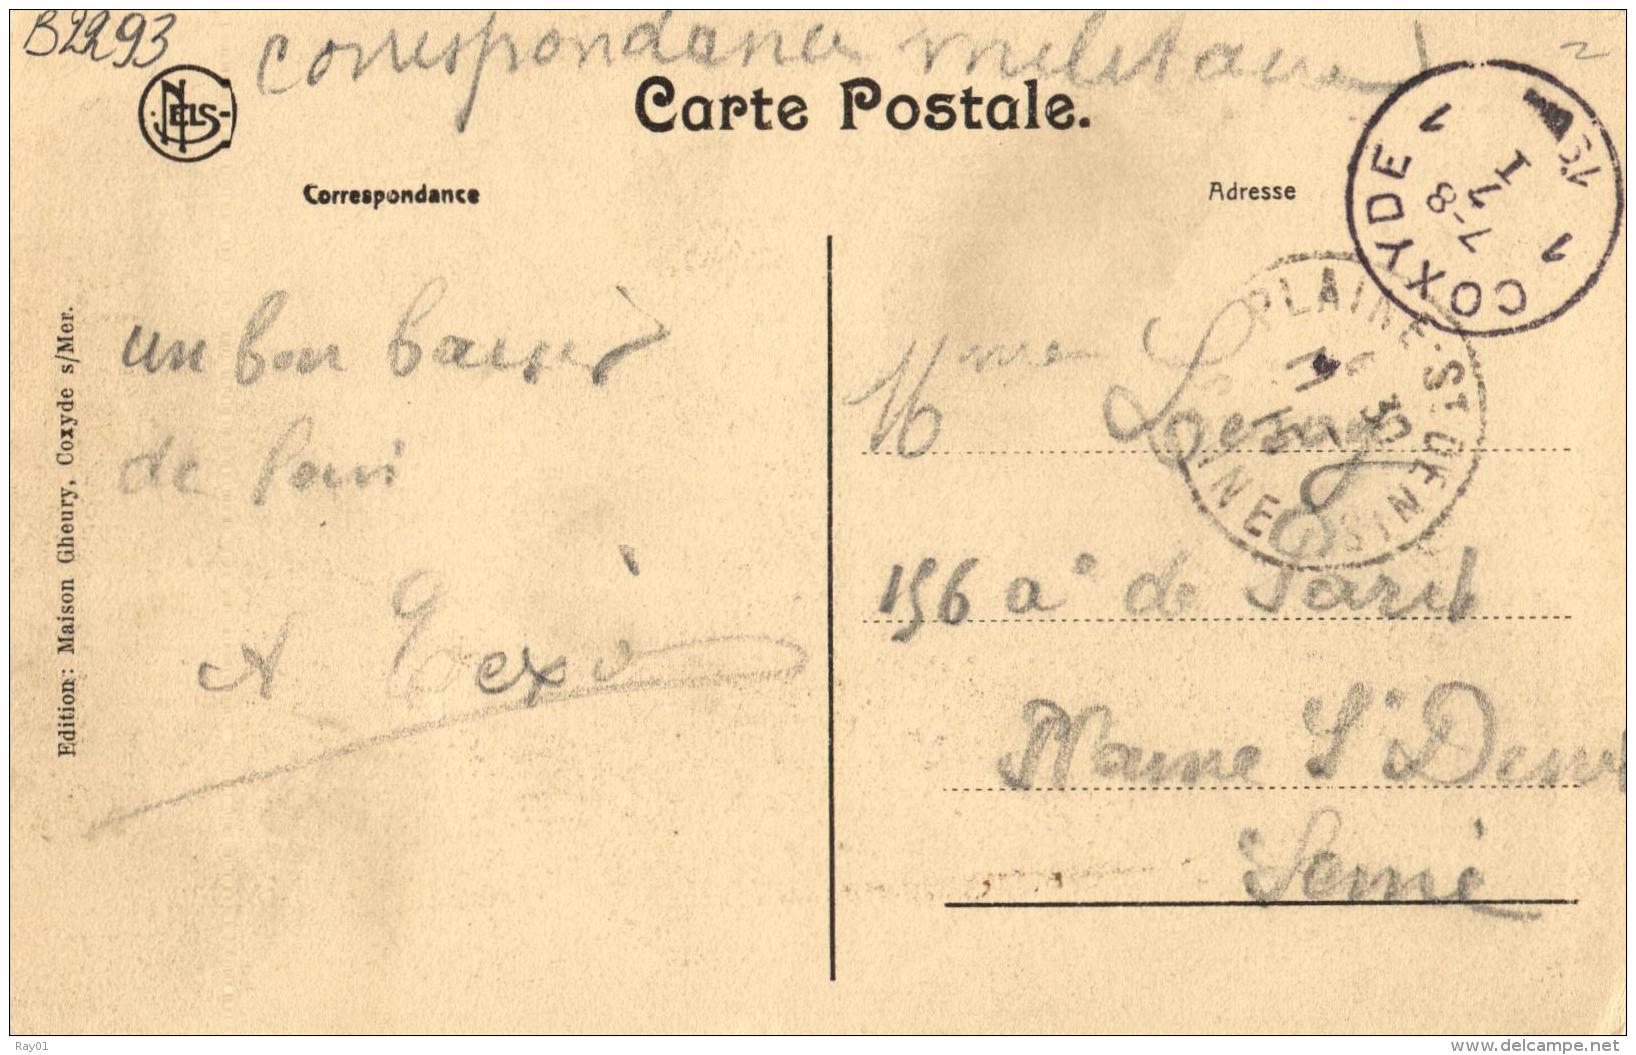 B2293
correspondance militaire
2
NELS
Carte Postale.
Correspondance
Adresse
COXYDE
1 1
7-8
17
I
PLAINE-ST DENIS
SEINE
un bon baiser
de Paris
Mme Lesage
156 a° de Paris
Plaine St Denis
Seine
Edition: Maison Gheury, Coxyde s/Mer.
Ray01
www.delcampe.net